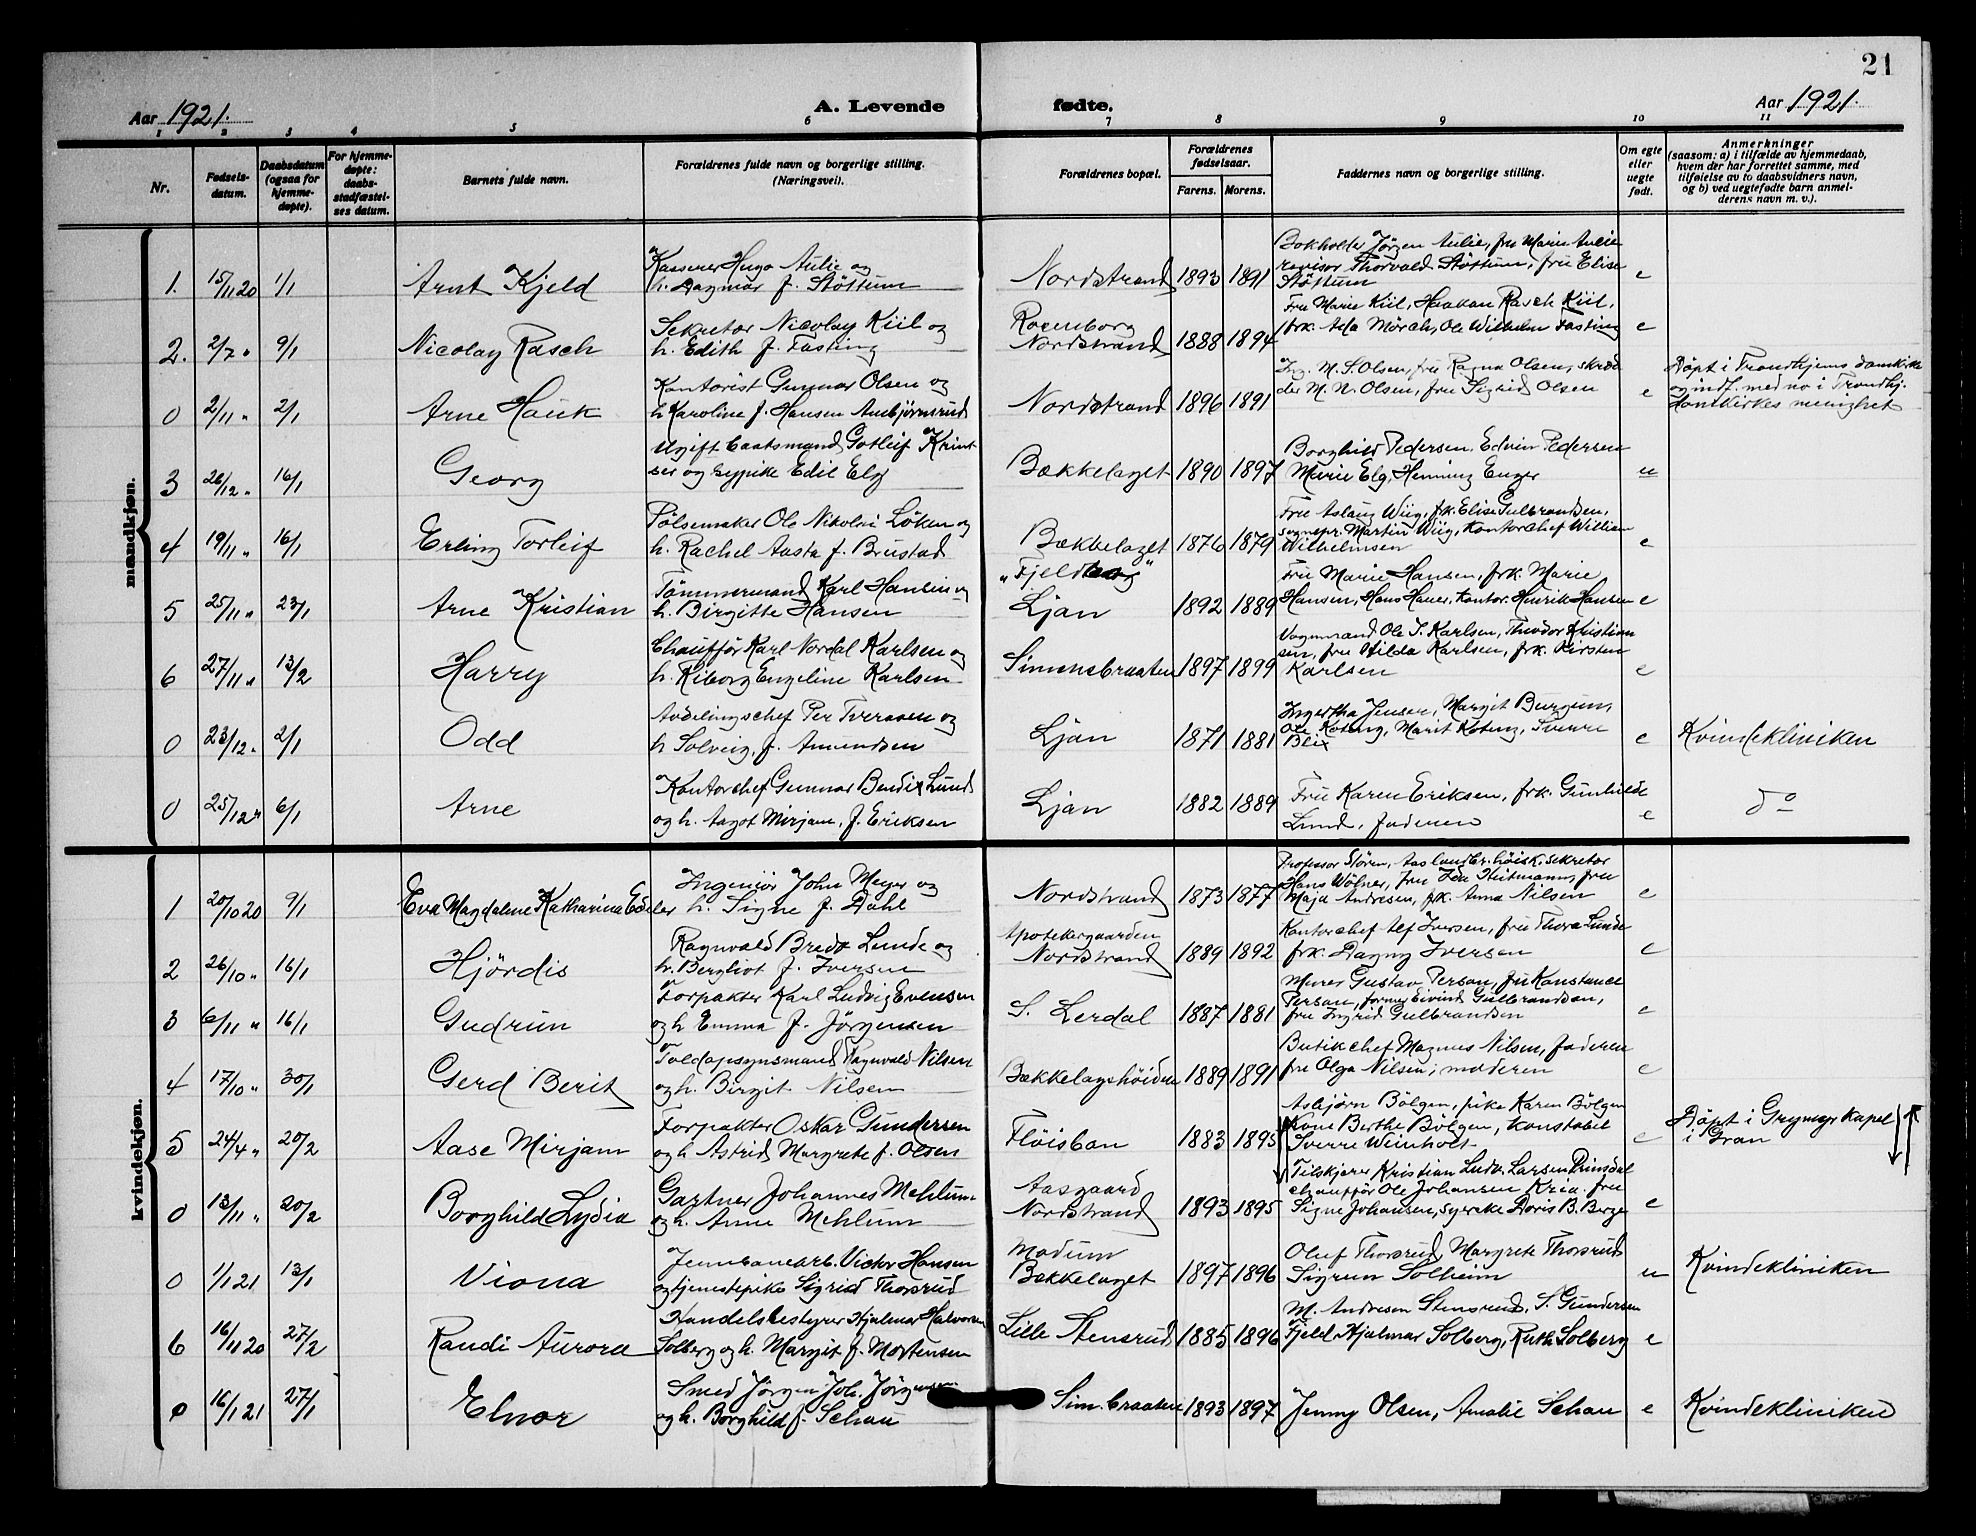 21
Aar 1921. A. Levende fødte. Aar 1921.
1 2 3 4 5 6 7 8 9 10 11
Nr.
Fødsels-
datum.
Daabsdatum
(ogsaa for
hjemme-
døpte).
For hjemme-
døpte:
daabs-
stadfæstel-
ses datum.
Barnets fulde navn.
Forældrenes fulde navn og borgerlige stilling.
(Næringsvei).
Forældrenes bopæl.
Forældrenes
fødselsaar.
Farens. Morens.
Faddernes navn og borgerlige stilling.
Om egte
eller
uegte
født.
Anmerkninger
(saasom: a) i tilfælde av hjemmedaab,
hvem der har forrettet samme, med
tilføielse av to daabsvidners navn,
og b) ved uegtefødte barn anmel-
derens navn m. v.).
mandkjøn.
1. 15/11 20 1/1 Arnt Kjeld
Kasserer Hugo Aulie og
h. Dagmar f. Støttum
Nordstrand 1893 1891
Bokholder Jörgen Aulie, fru Marie Aulie
revisor Thorvald Støttum, fru Elise
Støttum
e
2. 2/7 " 9/1 Nicolay Rasch
Sekretær Nicolay Kiil og
h. Edith f. Fasting
Rosenborg
Nordstrand 1888 1894
Fru Marie Kiil, Haakon Rasch Kiil,
frk. Ada Mörch, Ole Wilhelm Fasting
e
0 2/11 " 2/1 Arne Hauk
Kontorist Gunnar Olsen og
h. Karoline f. Hansen Ambjørnsrud
Nordstrand 1896 1891
Ing. M. S. Olsen, fru Ragna Olsen, skræd
der M. N. Olsen, fru Sigrid Olsen
e
Döpt i Trondhjems domkirke
og indf. med no i Trondhj.
domkirkes menighet
3 26/12 " 16/1 Georg
Ugift baatsmand Gotleif Krint
ser og sypike Edit Elg
Bækkelaget 1890 1897
Borghild Pedersen, Edvin Pedersen
Marie Elg, Henning Enger
u
4 19/11 " 16/1 Erling Torleif
Pölsemaker Ole Nikolai Löken og
h. Rachel Aasta f. Brustad
Bækkelaget 1876 1879
Fru Aslaug Wiig, frk. Elise Gulbrandsen,
sognepr. Martin Wiig, Kontorchef William
Wilhelmsen
e
5 25/11 " 23/1 Arne Kristian
Tömmermand Karl Hansen og
h. Birgitte Hansen
"Fjeldborg"
Ljan 1892 1889
Fru Marie Hansen, frk. Marie
Hansen, Hans Hauer, Kontor. Henrik Hansen
e
6 27/11 " 13/2 Harry
Chauffør Karl Nordal Karlsen og
h. Kiborg Engeline Karlsen
Simensbraaten 1897 1899
Vognmand Ole J. Karlsen, Theodor Kristian
sen, fru Hilda Karlsen, frk. Kirsten
Karlsen
e
0 23/12 " 2/1 Odd
Avdelingschef Per Tveraaen og
h. Solveig, f. Amundsen
Ljan 1871 1881
Ingertha Jensen, Margit Burgum,
Ole Koteng, Marit Koteng, Sverre
Blix
e
Kvindekliniken
0 25/12 " 6/1 Arne
Kontorchef Gunnar Bendix Lund
og h. Aagot Mirjam, f. Eriksen
Ljan 1882 1889
Fru Karen Eriksen, frk. Gunhilde
Lund, faderen
e
do
kvindekjøn.
1 20/10 20 9/1 Eva Magdalene Katharina Edeler
Ingeniør John Meyer og
h. Signe f. Dahl
Nordstrand 1873 1877
Professor Støren, Aas landbr. høisk. sekretær
Hans Wölner, fru Ida Heitmann, fru
Maja Andresen, frk. Anna Nilsen
e
2 26/10 " 16/1 Hjördis
Ragnvald Brede Lunde og
h. Bergliot f. Iversen
Apotekergaarden
Nordstrand 1889 1892
Kontorchef Alf Iversen, fru Thora Lunde
frk. Dagny Iversen
e
3 6/11 " 16/1 Gudrun
Forpakter Karl Ludvig Evensen
og h. Emma f. Jörgensen
S. Lerdal 1887 1881
Murer Gustav Persan, fru Konstance
Persan, former Eivind Gulbrandsen,
fru Ingrid Gulbrandsen
e
4 17/10 " 30/1 Gerd Berit
Toldopsynsmand Ragnvald Nilsen
og h. Birgit Nilsen
Bækkelagshöiden 1889 1891
Butikchef Magnus Nilsen, faderen
fru Olga Nilsen, moderen
e
5 24/4 " 20/2 Aase Mirjam
Forpakter Oskar Gundersen
og h. Astrid Margrete f. Olsen
Flöisbon 1883 1895
Asbjörn Bölgen, pike Karen Bölgen
Kone Berthe Bölgen, Konstabel
Sverre Weinholt
e
Döpt i Grymyr Kapel
i Gran
0 13/11 " 20/2 Borghild Lydia
Gartner Johannes Mehlum
og h. Anne Mehlum
Aasgaard
Nordstrand 1893 1895
Tilskjærer Kristian Ludv. Larsen Prinsdal
chauffør Ole Johansen Kria. fru
Signe Johansen, syerske Doris B. Berge
e
0 1/1 21 13/1 Viona
Jernbanearb. Victor Hansen
og tjenestepike Sigrid Thorsrud
Modum
Bækkelaget 1897 1896
Oluf Thorsrud, Margrete Thorsrud
Sigrun Solheim
u
Kvindekliniken
6 16/11 20 27/2 Randi Aurora
Handelsbestyrer Hjalmar Halvorsen
Solberg og h. Margit f. Mortensen
Lille Stensrud 1885 1896
M. Andresen Stensrud, S. Gundersen
Fjeld Hjalmar Solberg, Ruth Solberg
e
0 16/1 21 27/1 Elnor
Smed Jörgen Joh. Jörgensen
og h. Borghild f. Schau
Sim.braaten 1893 1897
Jenny Olsen, Amalie Schau
e
Kvindekliniken